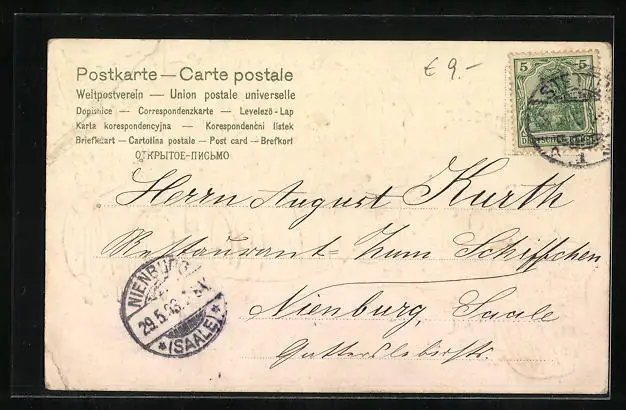 € 9.-
Postkarte — Carte postale
Weltpostverein — Union postale universelle
Dopisnice — Correspondenzkarte — Levelező-Lap
Karta korespondencyjna — Korespondenční listek
Briefkaart — Cartolina postale — Post card — Brefkort
ОТКРЫТОЕ-ПИСЬМО
5 5
Herrn August Kurth
Restaurant zum Schiffchen
Nienburg, Saale
NIENBURG
29.5.03
* (SAALE) *